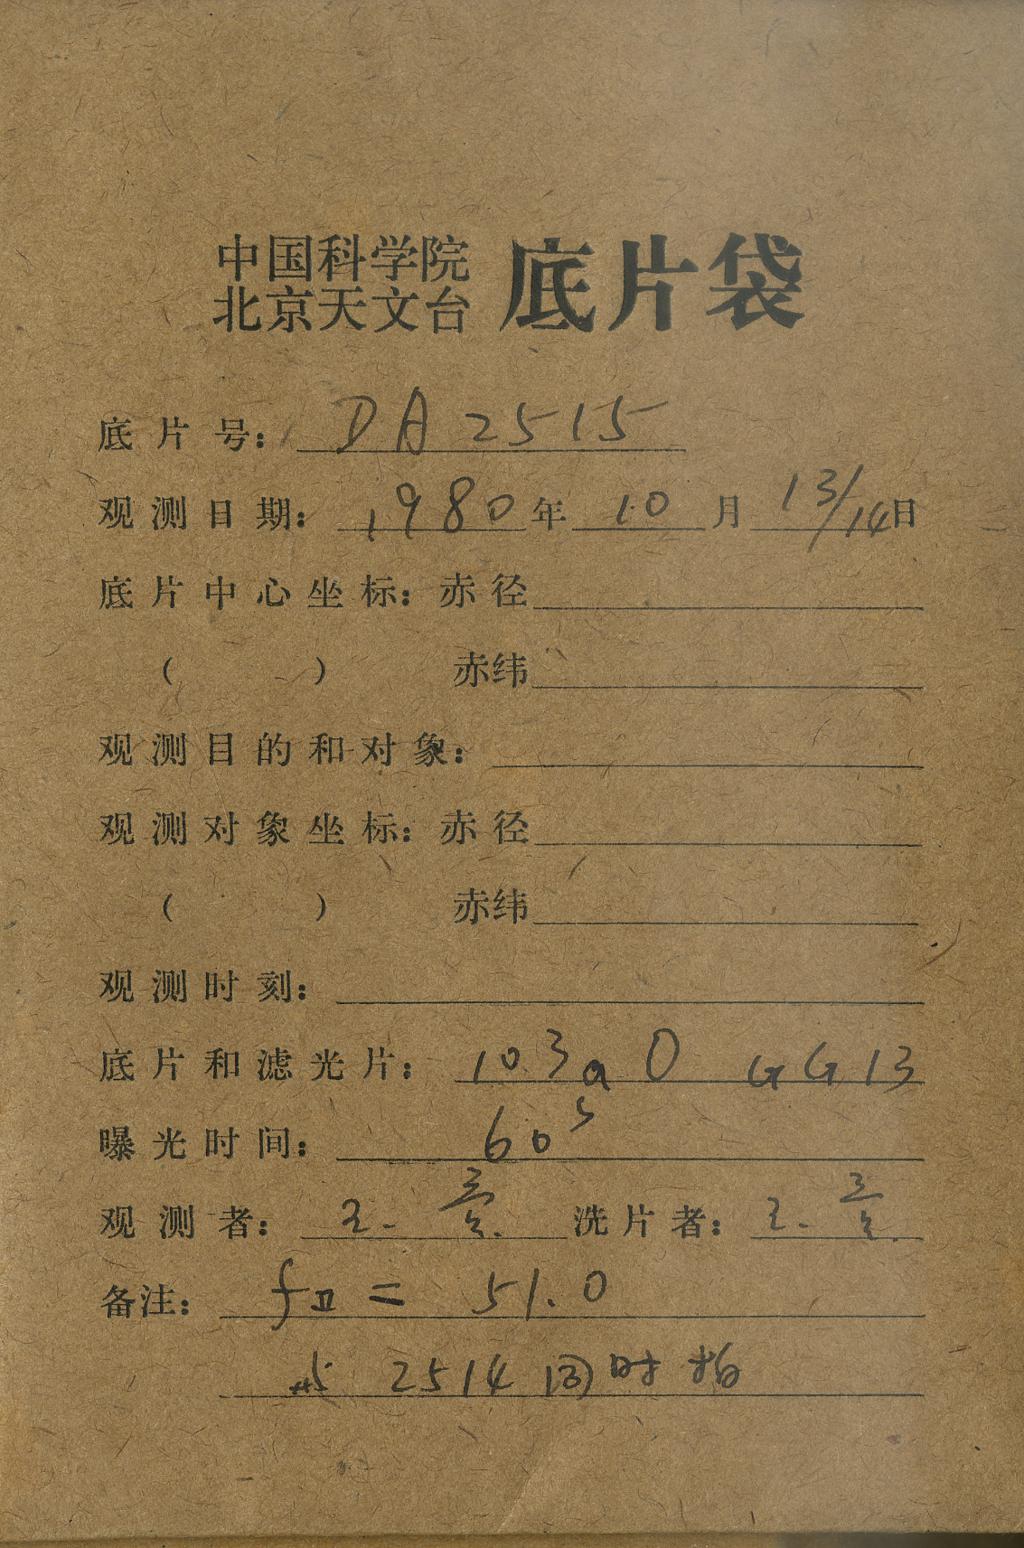 中国科学院
北京天文台 底片袋
底片号： DA2515
观测日期： 1980年 10月 13/14日
底片中心坐标：赤径
（ ） 赤纬
观测目的和对象：
观测对象坐标：赤径
（ ） 赤纬
观测时刻：
底片和滤光片： 103aO GG13
曝光时间： 60s
观测者： 洗片者：
备注： fⅡ = 51.0
与 2514 同时拍